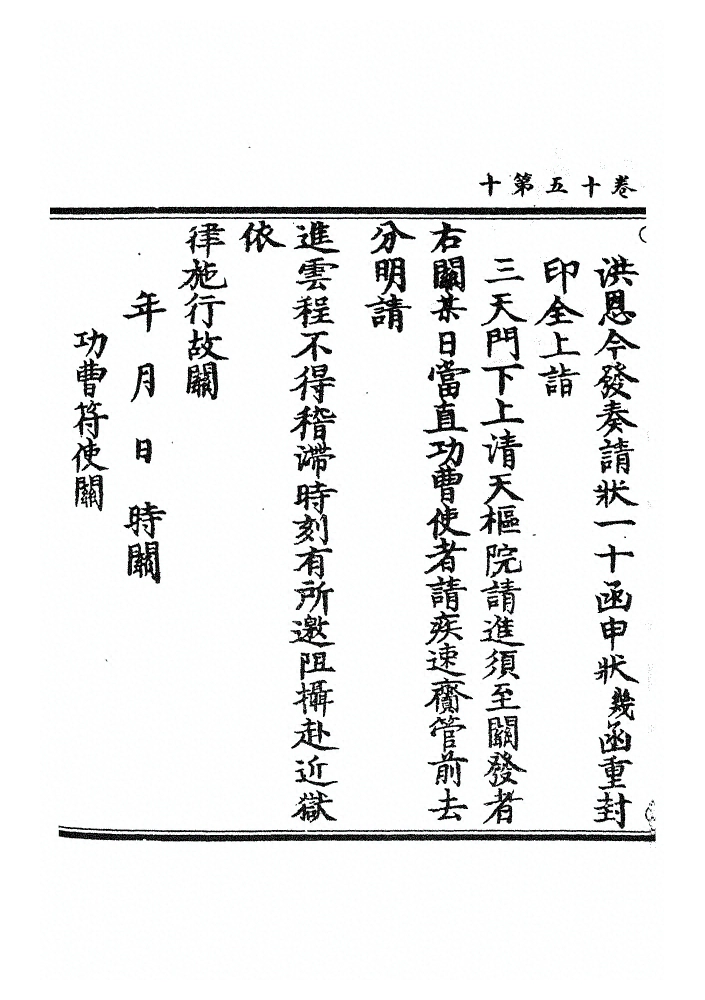 卷十五第十
洪恩今發奏請狀一十函申狀幾函重封
印全上詣
三天門下上清天樞院請進須至關發者
右關某日當直功曹使者請疾速齎管前去
分明請
進雲程不得稽滯時刻有所邀阻攝赴近獄
依
律施行故關
年月日時關
功曹符使關